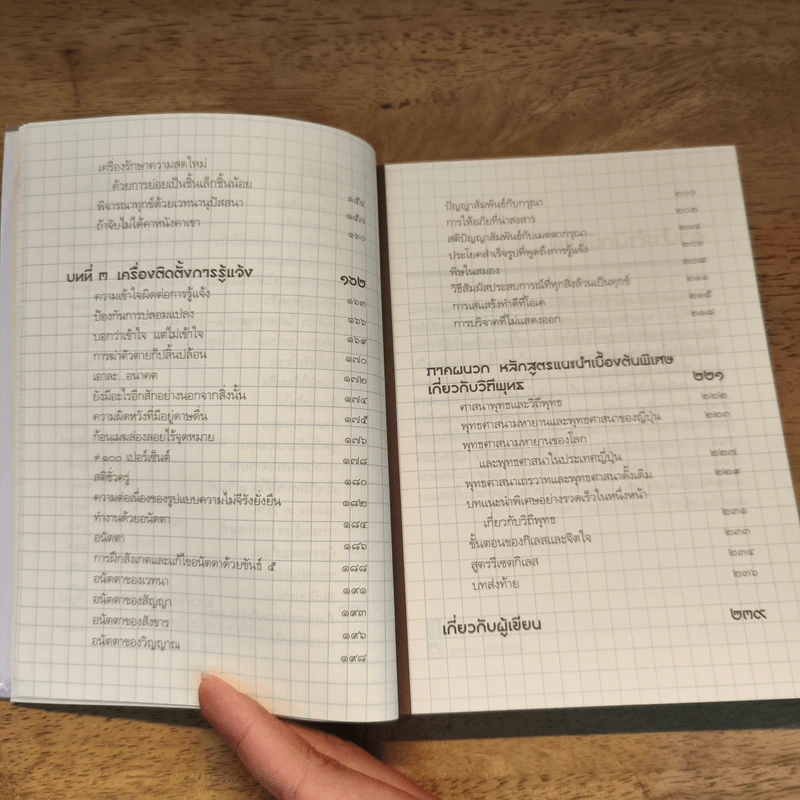 เครื่องรักษาความสดใหม่
ด้วยการย่อยเป็นชิ้นเล็กชิ้นน้อย ๑๕๔
พิจารณาทุกข์ด้วยเวทนานุปัสสนา ๑๕๗
ถ้าจับไม่ได้คาหนังคาเขา ๑๖๐
บทที่ ๓ เครื่องติดตั้งการรู้แจ้ง ๑๖๒
ความเข้าใจผิดต่อการรู้แจ้ง ๑๖๓
ป้องกันการปลอมแปลง ๑๖๖
บอกว่าเข้าใจ แต่ไม่เข้าใจ ๑๖๙
การฆ่าตัวตายก็ปลิ้นปล้อน ๑๗๐
เอาละ...อนาคต ๑๗๒
ยังมีอะไรอีกสักอย่างนอกจากสิ่งนั้น ๑๗๔
ความผิดหวังที่มีอยู่ดาษดื่น ๑๗๕
ก้อนเมฆล่องลอยไร้จุดหมาย ๑๗๖
≠ ๑๐๐ เปอร์เซ็นต์ ๑๗๘
สติชั่วครู่ ๑๘๐
ความต่อเนื่องของรูปแบบความไม่จีรังยั่งยืน ๑๘๒
ทำงานด้วยอนัตตา ๑๘๔
อนัตตา ๑๘๖
การฝึกสังเกตและแก้ไขอนัตตาด้วยขันธ์ ๕ ๑๘๘
อนัตตาของเวทนา ๑๙๑
อนัตตาของสัญญา ๑๙๓
อนัตตาของสังขาร ๑๙๖
อนัตตาของวิญญาณ ๑๙๘
ปัญญาสัมพันธ์กับกรุณา ๒๐๑
การให้อภัยที่น่าสงสาร ๒๐๒
สติปัญญาสัมพันธ์กับเมตตากรุณา
ประโยคสำเร็จรูปที่พูดถึงการรู้แจ้ง ๒๐๖
พิษในสมอง ๒๐๘
วิธีสัมผัสประสบการณ์ที่ทุกสิ่งล้วนเป็นทุกข์ ๒๑๑
การเสแสร้งทำดีที่โอเค ๒๑๕
การบริจาคที่ไม่แสดงออก ๒๑๘
ภาคผนวก หลักสูตรแนะนำเบื้องต้นพิเศษ
เกี่ยวกับวิถีพุทธ ๒๒๑
ศาสนาพุทธและวิถีพุทธ ๒๒๒
พุทธศาสนามหายานและพุทธศาสนาของญี่ปุ่น ๒๒๓
พุทธศาสนามหายานของโลก
และพุทธศาสนาในประเทศญี่ปุ่น ๒๒๗
พุทธศาสนาเถรวาทและพุทธศาสนาดั้งเดิม ๒๒๙
บทแนะนำพิเศษอย่างรวดเร็วในหนึ่งหน้า
เกี่ยวกับวิถีพุทธ ๒๓๑
ขั้นตอนของกิเลสและจิตใจ ๒๓๓
สูตรรีเซตกิเลส ๒๓๔
บทส่งท้าย ๒๓๖
เกี่ยวกับผู้เขียน ๒๓๙